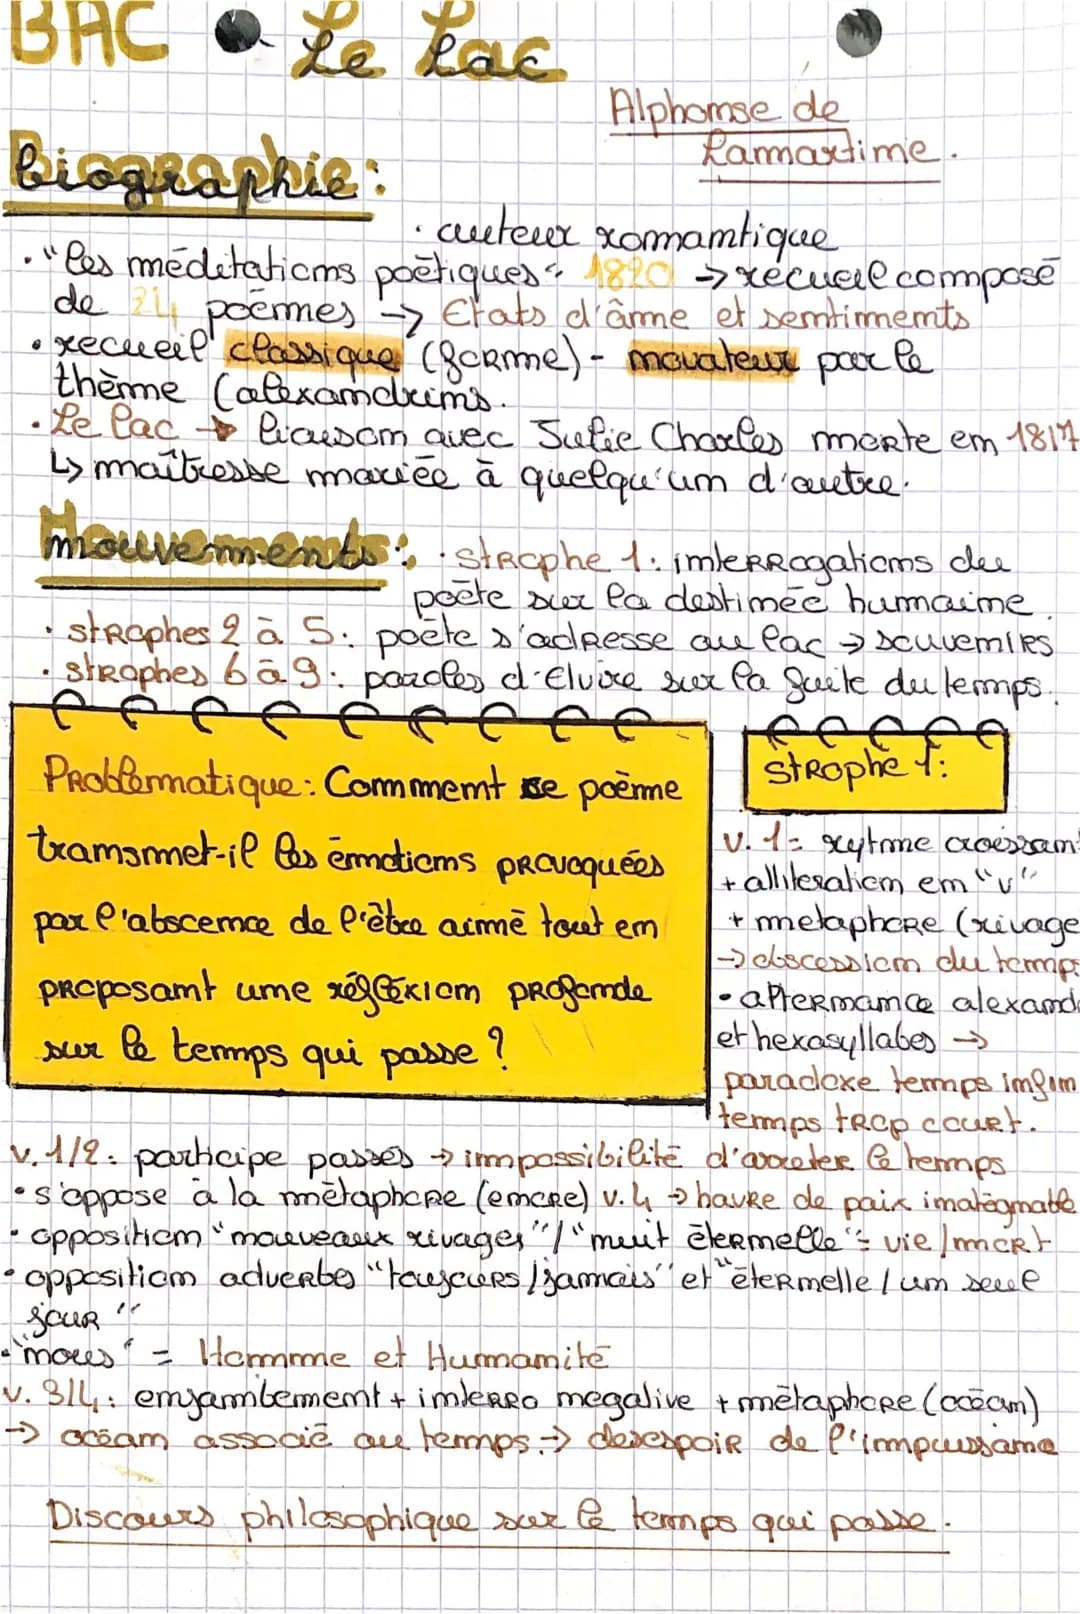 BAC • Le Lac
Alphonse de
Lamartine.
Biographie :
· auteur romantique
· "les méditations poétiques" 1820 → recueil composé
de 24 poèmes → Etats d'âme et sentiments
• recueil classique (forme) - novateur par le
thème (alexandrins.
· Le lac → liaison avec Julie Charles morte en 1817
↳ maîtresse mariée à quelqu'un d'autre.
Mouvements : · strophe 1 : interrogations du
poète sur la destinée humaine
· strophes 2 à 5 : poète s'adresse au lac → souvenirs
· strophes 6 à 9 : paroles d'Elvire sur la fuite du temps.
Problématique : Comment ce poème
transmet-il les émotions provoquées
par l'abscence de l'être aimé tout en
proposant une réflexion profonde
sur le temps qui passe ?
strophe 1 :
v. 1 = rytme croissant
+ allitération en "v"
+ métaphore (rivage
→ obscession du temps
• alternance alexand
et hexasyllabes →
paradoxe temps infini
temps trop court.
v. 1/2 : participe passés → impossibilité d'arreter le temps
• s'oppose à la métaphore (encre) v. 4 → havre de paix inateignable
• opposition "nouveaux rivages" / "nuit éternelle" = vie / mort
• opposition adverbes "toujours / jamais" et "éternelle / un seul
jour"
• "nous" = Homme et Humanité
v. 3/4 : enjambement + interro négative + métaphore (océan)
→ océan associé au temps → désespoir de l'impuissance
Discours philosophique sur le temps qui passe.